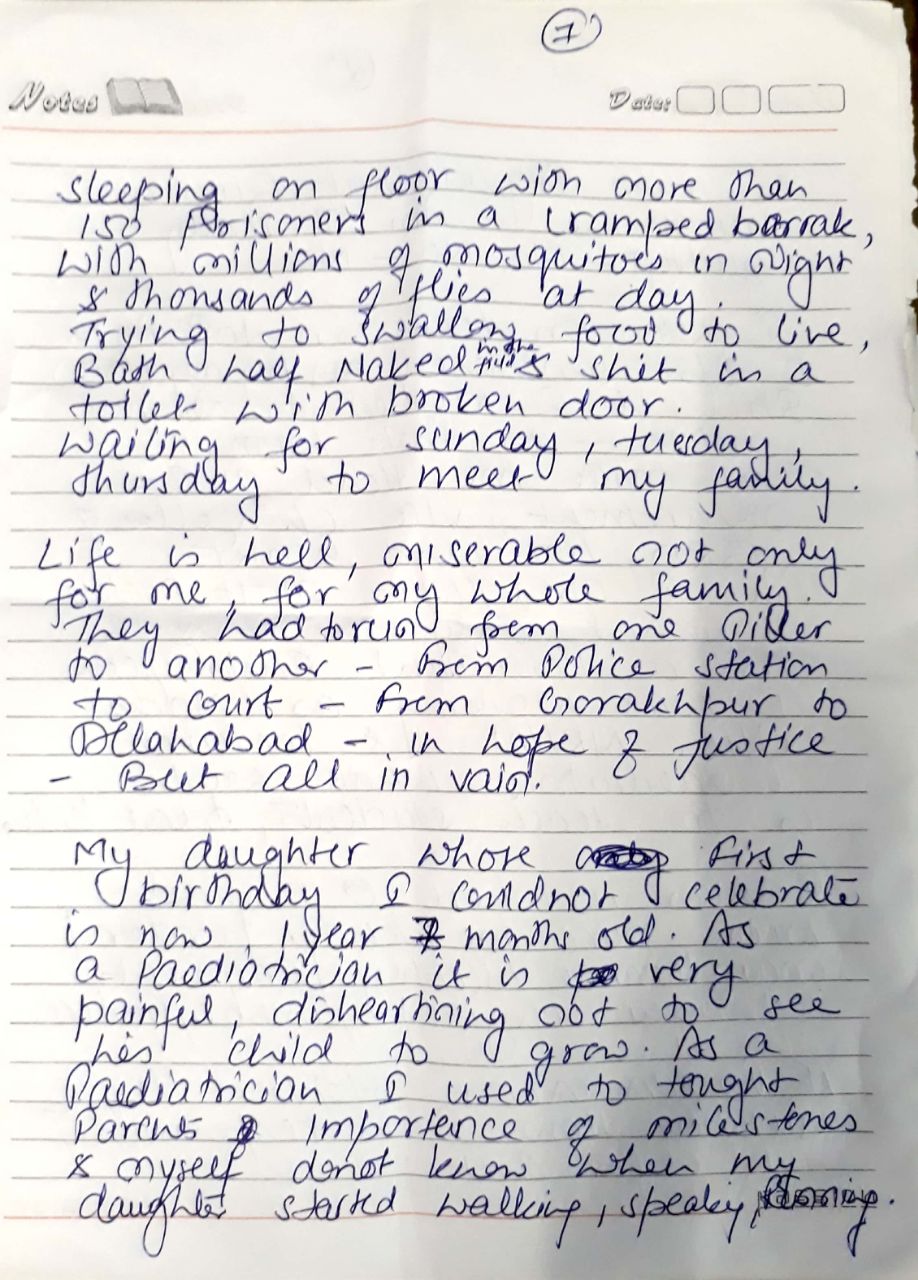 7
Notes
Date:
sleeping on floor with more than
150 Prisoners in a cramped barrak,
with millions of mosquitoes in Night
& thousands of flies at day.
Trying to swallow food to live,
Bath half Naked in the & shit in a
toilet with broken door.
waiting for sunday, tuesday,
thursday to meet my family.
Life is hell, miserable not only
for me, for my whole family.
They had to run from one Piller
to another - from Police station
to court - from Gorakhpur to
Allahabad - in hope of justice
- But all in vain.
My daughter whose first
birthday I couldnot celebrate
is now, 1 year 7 months old. As
a Paediatrician it is very
painful, disheartining not to see
his child to grow. As a
Paediatrician I used to tought
Parents importance of milestones
& myself donot know when my
daughter started walking, speaking,